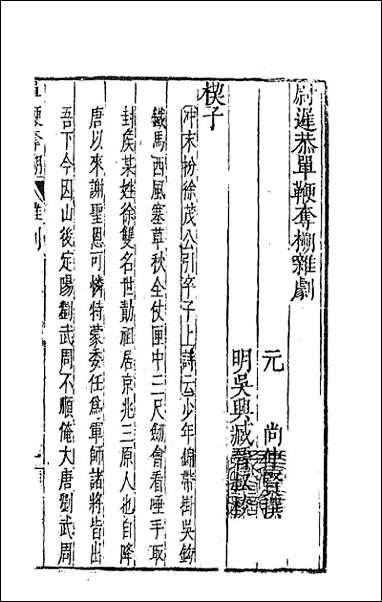 尉遲恭單鞭奪槊雜劇
元　尚仲賢撰
明吳興臧晉叔校
楔子
冲末扮徐茂公引卒子上詩云少年錦帶掛吳鈎
鐵馬西風塞草秋全仗匣中三尺劒會看唾手取
封侯某姓徐雙名世勣祖居京兆三原人也自降
唐以來謝聖恩可憐特蒙委任爲軍師諸將皆出
吾下今因山後定陽劉武周不順俺大唐劉武周